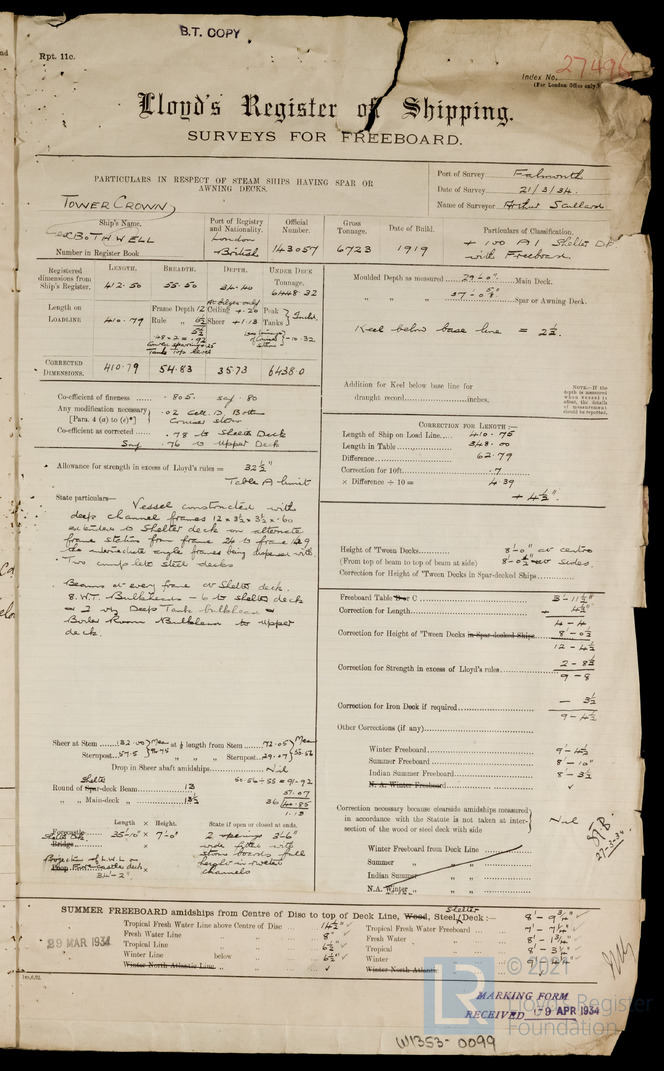 B.T. COPY
Rpt. 11c.
Index No. 27496
(For London Office only.)
Lloyd's Register of Shipping.
SURVEYS FOR FREEBOARD.
PARTICULARS IN RESPECT OF STEAM SHIPS HAVING SPAR OR
AWNING DECKS.
Port of Survey Falmouth
Date of Survey 21/3/34.
Name of Surveyor Arthur
TOWER CROWN
Ship's Name. Port of Registry and Nationality. Official Number. Gross Tonnage. Date of Build. Particulars of Classification.
BOTHWELL London British 143057 6723 1919 + 100 A1 Shelter Dk with Freeboard.
Number in Register Book
Registered dimensions from Ship's Register. LENGTH. 412.50 BREADTH. 55.50 DEPTH. 34.40 UNDER DECK TONNAGE. 6448.32
Length on LOADLINE 410.79 Frame Depth 12 Ceiling + .20 Peak
Rule Sheer + 1.13 Tanks - 10.32
CORRECTED DIMENSIONS. 410.79 54.83 35.73 6438.0
Co-efficient of fineness .805. say .80
Any modification necessary [Para. 4 (a) to (e)*] .02 Cell. D. Bottm
Co-efficient as corrected .78 to Shelter Deck
Say .76 to Upper Deck
Allowance for strength in excess of Lloyd's rules = 32½"
Table A limit
State particulars— Vessel constructed with
deep channel frames 12 x 3½ x 3½ x .60
extended to Shelter deck on alternate
frame stations from frame 24 to frame 149
the intermediate angle frames being dispensed with
Two complete steel decks
Beams at every frame at Shelter deck.
8. W.T. Bulkheads - 6 to shelter deck
Deep Tank bulkhead
Boiler Room Bulkhead to upper
deck.
Sheer at Stem 132.00 Mean at ⅛ length from Stem 72.05 Mean
Sternpost 57.5 Sternpost 29.07
Drop in Sheer abaft amidships Nil
Shelter
Round of Spar-deck Beam 13
" " Main-deck " 13½
57.07
36 40.85
1.13
Length × Height. State if open or closed at ends.
Forecastle 35'-10" × 7'-0" 2 openings 3'-6"
Bridge × wide fitted with
Poop × storm boards full
34'-2" channels
Moulded Depth as measured 29'-0" Main Deck.
" " " 37'-0⅝" Spar or Awning Deck.
Keel below base line = 2½.
Addition for Keel below base line for
draught record inches.
NOTE.—If the depth is measured when vessel is afloat, the details of measurement should be reported.
CORRECTION FOR LENGTH:—
Length of Ship on Load Line 410.75
Length in Table 348.00
Difference 62.79
Correction for 10ft. .7
× Difference ÷ 10 = 4.39
+ 4½".
Height of 'Tween Decks 8'-0" at centre
(From top of beam to top of beam at side) 8'-0½" at sides.
Correction for Height of 'Tween Decks in Spar-decked Ships
Freeboard Table B or C 3-11½"
Correction for Length + 4½"
4-4
Correction for Height of 'Tween Decks in Spar-decked Ships 8'-0½
12-4½
Correction for Strength in excess of Lloyd's rules 2-8½
9-8
Correction for Iron Deck if required - 3½
9-4½
Other Corrections (if any)
Winter Freeboard 9'-4½
Summer Freeboard 8'-10"
Indian Summer Freeboard 8-3½
N. A. Winter Freeboard
Correction necessary because clearside amidships measured
in accordance with the Statute is not taken at inter-
section of the wood or steel deck with side
Nil
27-3-34
Winter Freeboard from Deck Line
Summer " "
Indian Summer " "
N.A. Winter " "
SUMMER FREEBOARD amidships from Centre of Disc to top of Deck Line, Wood, Steel, Shelter Deck:— 8'-9¾"
Tropical Fresh Water Line above Centre of Disc 14½"
Fresh Water Line 8"
Tropical Line 6½"
Winter Line below 6½"
Winter North Atlantic Line
Tropical Fresh Water Freeboard 7'-7¼"
Fresh Water 8'-1¾"
Tropical 8'-3¼"
Winter 9'-4¼"
Winter North Atlantic
29 MAR 1934
© 2021
Lloyd's Register
Foundation
MARKING FORM
RECEIVED 9 APR 1934
W1353-0099